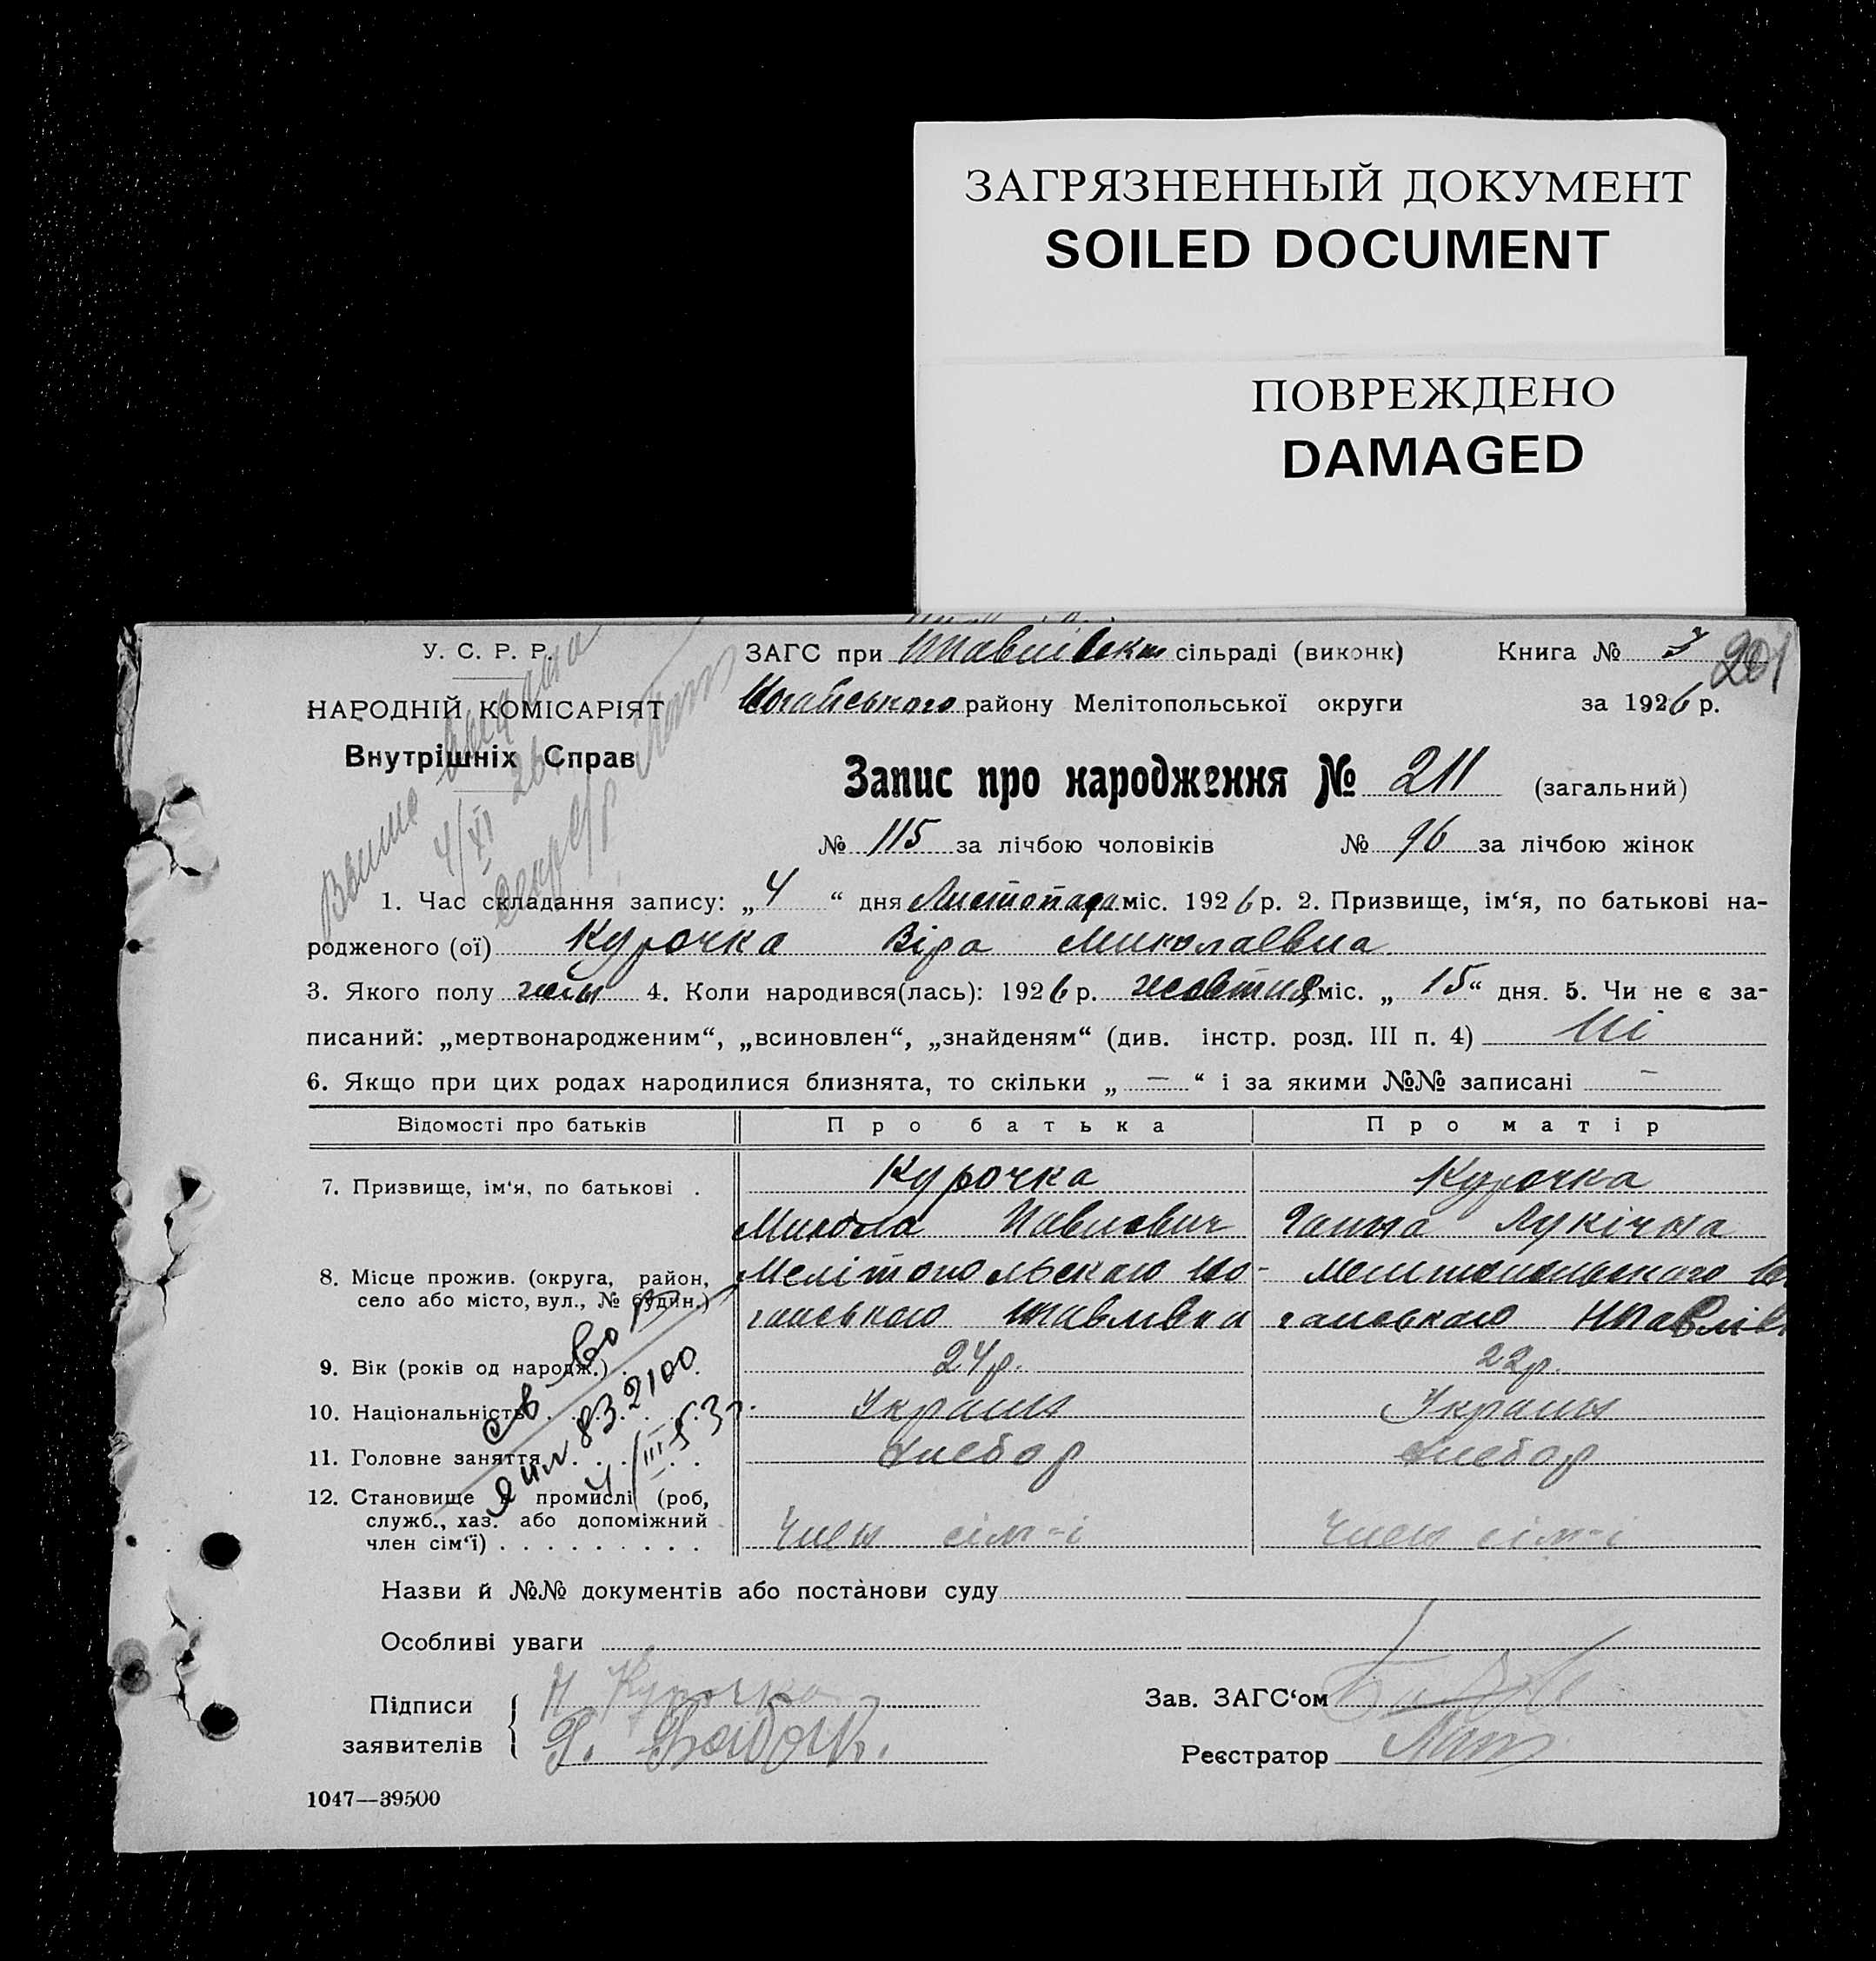 ЗАГРЯЗНЕННЫЙ ДОКУМЕНТ
SOILED DOCUMENT
ПОВРЕЖДЕНО
DAMAGED
У. С. Р. Р.
НАРОДНІЙ КОМІСАРІЯТ
Внутрішніх Справ
ЗАГС при сільраді (виконк)
Книга № 3
201
Ногайського району Мелітопольської округи
за 1926 р.
Запис про народження № 211 (загальний)
№ 115 за лічбою чоловіків № 96 за лічбою жінок
1. Час складання запису: „ 4 “ дня Листопада міс. 1926 р. 2. Призвище, ім‘я, по батькові на-
родженого (ої) Курочка Віра Миколаївна
3. Якого полу 4. Коли народився(лась): 1926 р. жовтня міс. „ 15 “ дня. 5. Чи не є за-
писаний: „мертвонародженим“, „всиновлен“, „знайденям“ (див. інстр. розд. III п. 4) Ні
6. Якщо при цих родах народилися близнята, то скільки „ — “ і за якими №№ записані —
Відомості про батьків Про батька Про матір
7. Призвище, ім‘я, по батькові . Курочка Курочка
Микола Павлович Ганна Лукічна
8. Місце прожив. (округа, район, Мелітопольского Но- Мелітопольского
село або місто, вул., № будин.) гайського
9. Вік (років од народж.) 24 р. 22 р.
10. Національність Україн Україн
11. Головне заняття Хлебор Хлебор
12. Становище в промислі (роб,
служб., хаз. або допоміжний
член сім‘ї) Член сім-ї Член сім-ї
Св-во
832100
4/III 53 г.
Назви й №№ документів або постанови суду
Особливі уваги
Підписи Н Курочка
заявителів
Зав. ЗАГС‘ом
Реєстратор
1047—39500